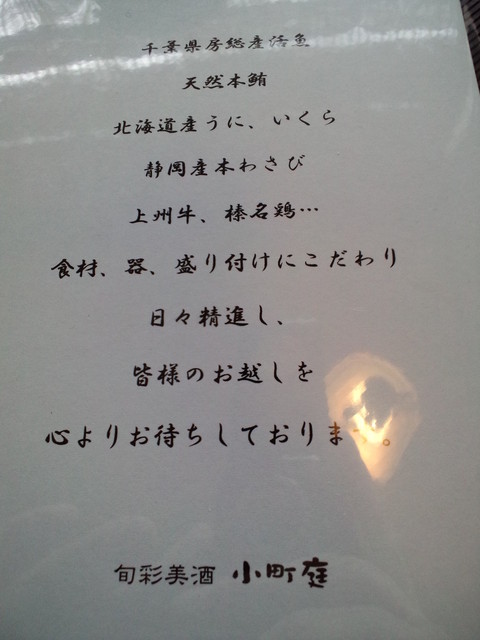 千葉県房総産活魚
天然本鮪
北海道産うに、いくら
静岡産本わさび
上州牛、榛名鶏…
食材、器、盛り付けにこだわり
日々精進し、
皆様のお越しを
心よりお待ちしております。
旬彩美酒 小町庭